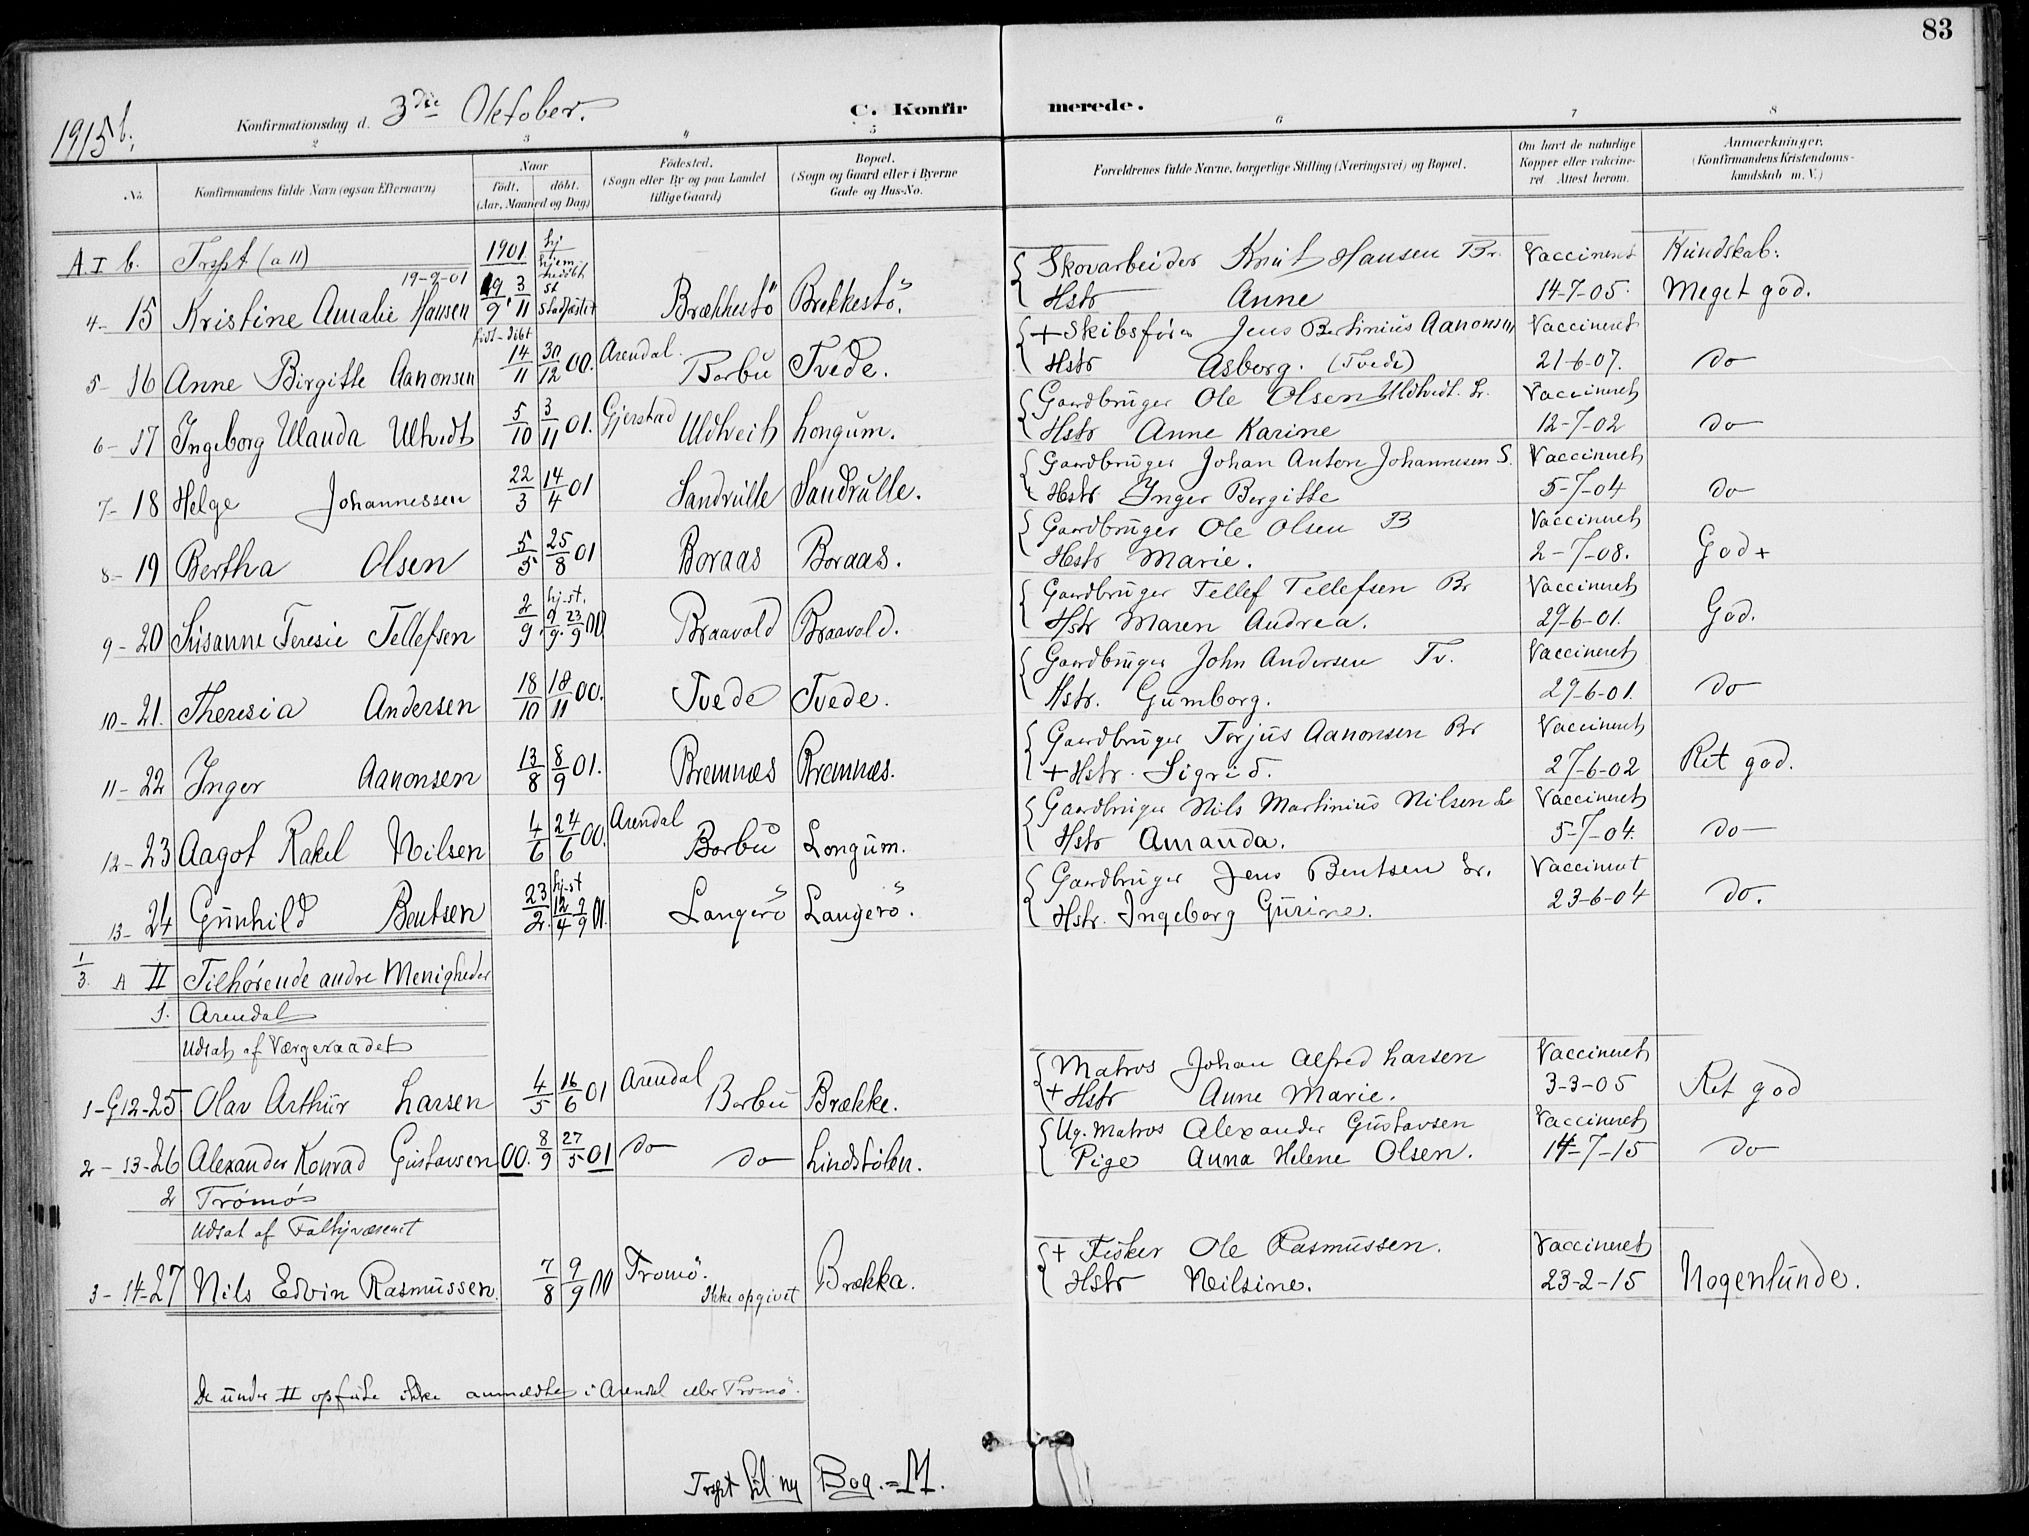 83
1915 b.
Konfirmationsdag d. 3die Oktober.
C. Konfirmerede.
2 3 4 5 6 7 8
No. | Konfirmandens fulde Navn (ogsaa Efternavn) | Naar født. døbt. (Aar, Maaned og Dag) | Fødested. (Sogn eller By og paa Landet tillige Gaard) | Bopæl. (Sogn og Gaard eller i Byerne Gade og Hus-No. | Forældrenes fulde Navne, borgerlige Stilling (Næringsvei) og Bopæl. | Om havt de naturlige Kopper eller vakcineret Attest herom. | Anmærkninger. (Konfirmandens Kristendomskundskab m. V.)
A. I b. Trspt (a 11) 1901 hj Kundskab:
4- 15 Kristine Amalie Hansen 19-9-01 19/9 3/11 hjem døbt st stadfæstet Brækkestö Brekkestö. Skovarbeider Knut Hansen Br. Hstr Anne Vaccineret 14-7-05. Meget god.
5- 16 Anne Birgitte Aanonsen født - döbt 14/11 30/12 00. Arendal. Barbu Tvede. + Skibsfører Jens Bertinius Aanonsen Hstr Asborg. (Tvede) Vaccineret 21-6-07. do
6- 17 Ingeborg Ulanda Ultvedt 5/10 3/11 01. Gjerstad Uldveit Longum. Gaardbruger Ole Olsen Uldtvedt. Lr. Hstr Anne Karine Vaccineret 12-7-02 do
7- 18 Helge Johannessen 22/3 14/4 01 Sandrulle Sandrulle. Gaardbruger Johan Anton Johannesen S. Hstr Inger Bergitte Vaccineret 5-7-04 do
8- 19 Bertha Olsen 5/5 25/8 01 Boraas Boraas. Gaardbruger Ole Olsen B Hstr Marie. Vaccineret 2-7-08. God +
9- 20 Susanne Teresie Tellefsen 2/9. hj-st. 9/9. 23/9 00 Braavold Braavold. Gaardbruger Tellef Tellefsen Br Hstr Maren Andrea. Vaccineret 29-6-01. God.
10- 21. Theresia Andersen 18/10 18/11 00. Tvede Tvede. Gaardbruger John Andersen Tv. Hstr. Gumborg. Vaccineret 29-6-01. do
11- 22 Inger Aanonsen 13/8 8/9 01. Bremnæs Bremnæs. Gaardbruger Torjus Aanonsen Br + Hstr. Sigrid. Vaccineret 27-6-02 Ret god.
12- 23 Aagot Rakel Nilsen 4/6 24/6 00. Arendal Barbu Longum. Gaardbruger Nils Martinius Nilsen Lo Hstr Amanda. Vaccineret 5-7-04. do
13- 24 Gunhild Bentsen 23/2. hj-st 12/4 9/9 01. Langerö Langerö. Gaardbruger Jens Bentsen Lr. Hstr. Ingeborg Gurine. Vaccineret 23-6-04 do.
1/3. A II Tilhørende andre Menigheder
1. Arendal
Udsat af Værgeraadet
1-G12-25 Olav Arthur Larsen 4/5 16/6 01 Arendal Barbu Brække. Matros Johan Alfred Larsen + Hstr Anne Marie. Vaccineret 3-3-05 Ret god
2-13-26 Alexander Konrad Gustavsen 00. 8/9 27/5 01 do do Lindstölen. Ug. Matros Alexander Gustavsen Pige Anna Helene Olsen. Vaccineret 14-7-15 do
2 Trömö
Udsat af Fattigvæsenet
3-14-27 Nils Edvin Rasmussen. 7/8 9/9 00 Tromö. Ikke opgivet Brækka. + Fisker Ole Rasmussen. Hstr Nilsine. Vaccineret 23-2-15 Nogenlunde.
De under II opførte ikke anmeldte i Arendal eller Tromö.
Trspt til ny Bog. = M.